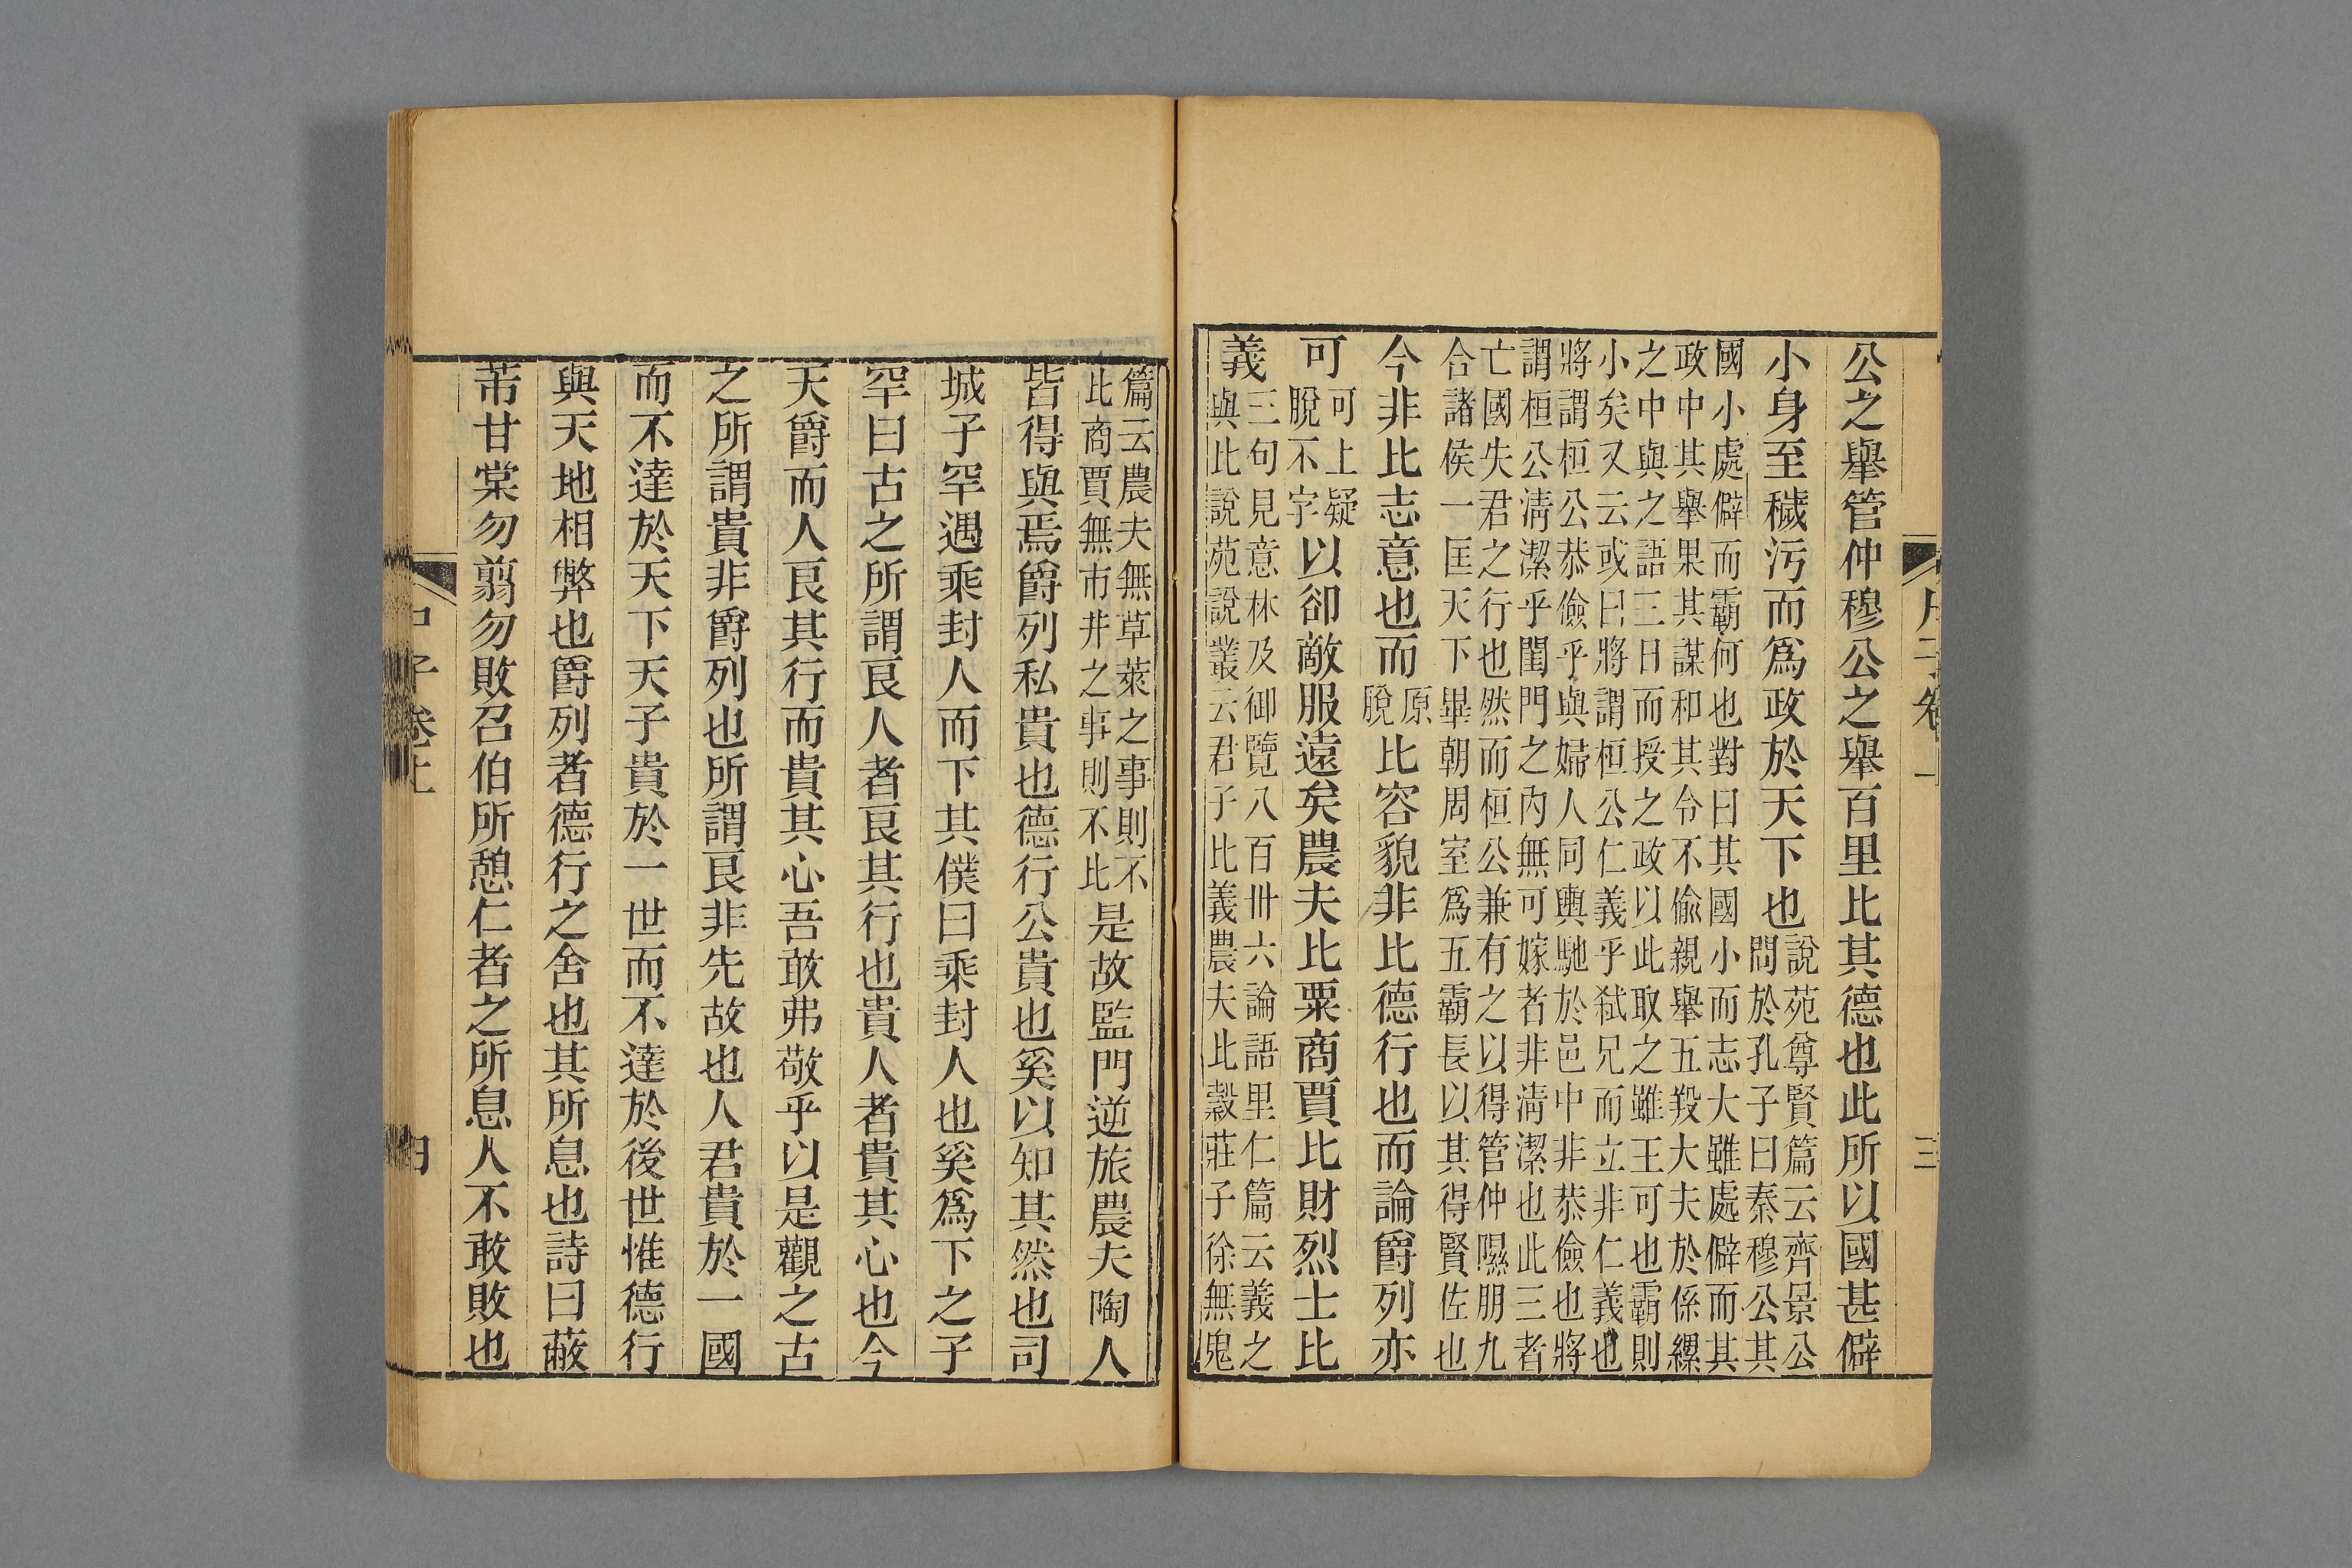 三
公之舉管仲穆公之舉百里比其德也此所以國甚僻
小身至穢污而爲政於天下也說苑尊賢篇云齊景公
問於孔子曰秦穆公其
國小處僻而霸何也對曰其國小而志大雖處僻而其
政中其舉果其謀和其令不偷親舉五羖大夫於係縲
之中與之語三日而授之政以此取之雖王可也霸則
小矣又云或曰將謂桓公仁義乎弑兄而立非仁義也
將謂桓公恭儉乎與婦人同輿馳於邑中非恭儉也將
謂桓公淸潔乎閨門之內無可嫁者非淸潔也此三者
亡國失君之行也然而桓公兼有之以得管仲隰朋九
合諸侯一匡天下畢朝周室爲五霸長以其得賢佐也
今非比志意也而原脫比容貌非比德行也而論爵列亦
可可上疑脫不字以卻敵服遠矣農夫比粟商賈比財烈士比
義三句見意林及御覽八百卌六論語里仁篇云義之
與比說苑說叢云君子比義農夫比穀莊子徐無鬼
篇云農夫無草萊之事則不
比商賈無市井之事則不比是故監門逆旅農夫陶人
皆得與焉爵列私貴也德行公貴也奚以知其然也司
城子罕遇乘封人而下其僕曰乘封人也奚爲下之子
罕曰古之所謂良人者良其行也貴人者貴其心也今
天爵而人良其行而貴其心吾敢弗敬乎以是觀之古
之所謂貴非爵列也所謂良非先故也人君貴於一國
而不達於天下天子貴於一世而不達於後世惟德行
與天地相弊也爵列者德行之舍也其所息也詩曰蔽
芾甘棠勿翦勿敗召伯所憩仁者之所息人不敢敗也
子卷上
四